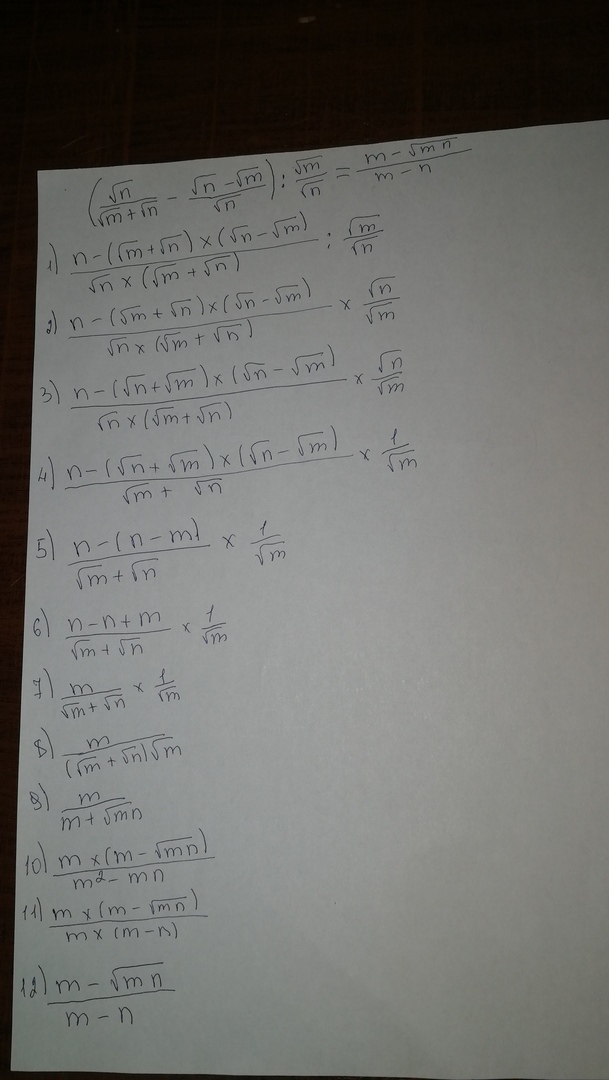 (√n/(√m+√n) - (√n-√m)/√n) : √m/√n = (m-√mn)/(m-n)
1) (n-(√m+√n)×(√n-√m))/(√n×(√m+√n)) : √m/√n
2) (n-(√m+√n)×(√n-√m))/(√n×(√m+√n)) × √n/√m
3) (n-(√n+√m)×(√n-√m))/(√n×(√m+√n)) × √n/√m
4) (n-(√n+√m)×(√n-√m))/(√m+√n) × 1/√m
5) (n-(n-m))/(√m+√n) × 1/√m
6) (n-n+m)/(√m+√n) × 1/√m
7) m/(√m+√n) × 1/√m
8) m/((√m+√n)√m)
9) m/(m+√mn)
10) (m×(m-√mn))/(m²-mn)
11) (m×(m-√mn))/(m×(m-n))
12) (m-√mn)/(m-n)